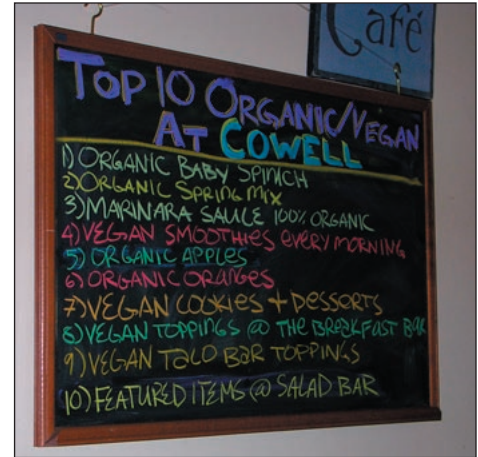 Café
TOP 10 ORGANIC/VEGAN
AT COWELL
1) ORGANIC BABY SPINICH
2) ORGANIC SPRING MIX
3) MARINARA SAUCE 100% ORGANIC
4) VEGAN SMOOTHIES EVERY MORNING
5) ORGANIC APPLES
6) ORGANIC ORANGES
7) VEGAN COOKIES + DESSERTS
8) VEGAN TOPPINGS @ THE BREAKFAST BAR
9) VEGAN TACO BAR TOPPINGS
10) FEATURED ITEMS @ SALAD BAR